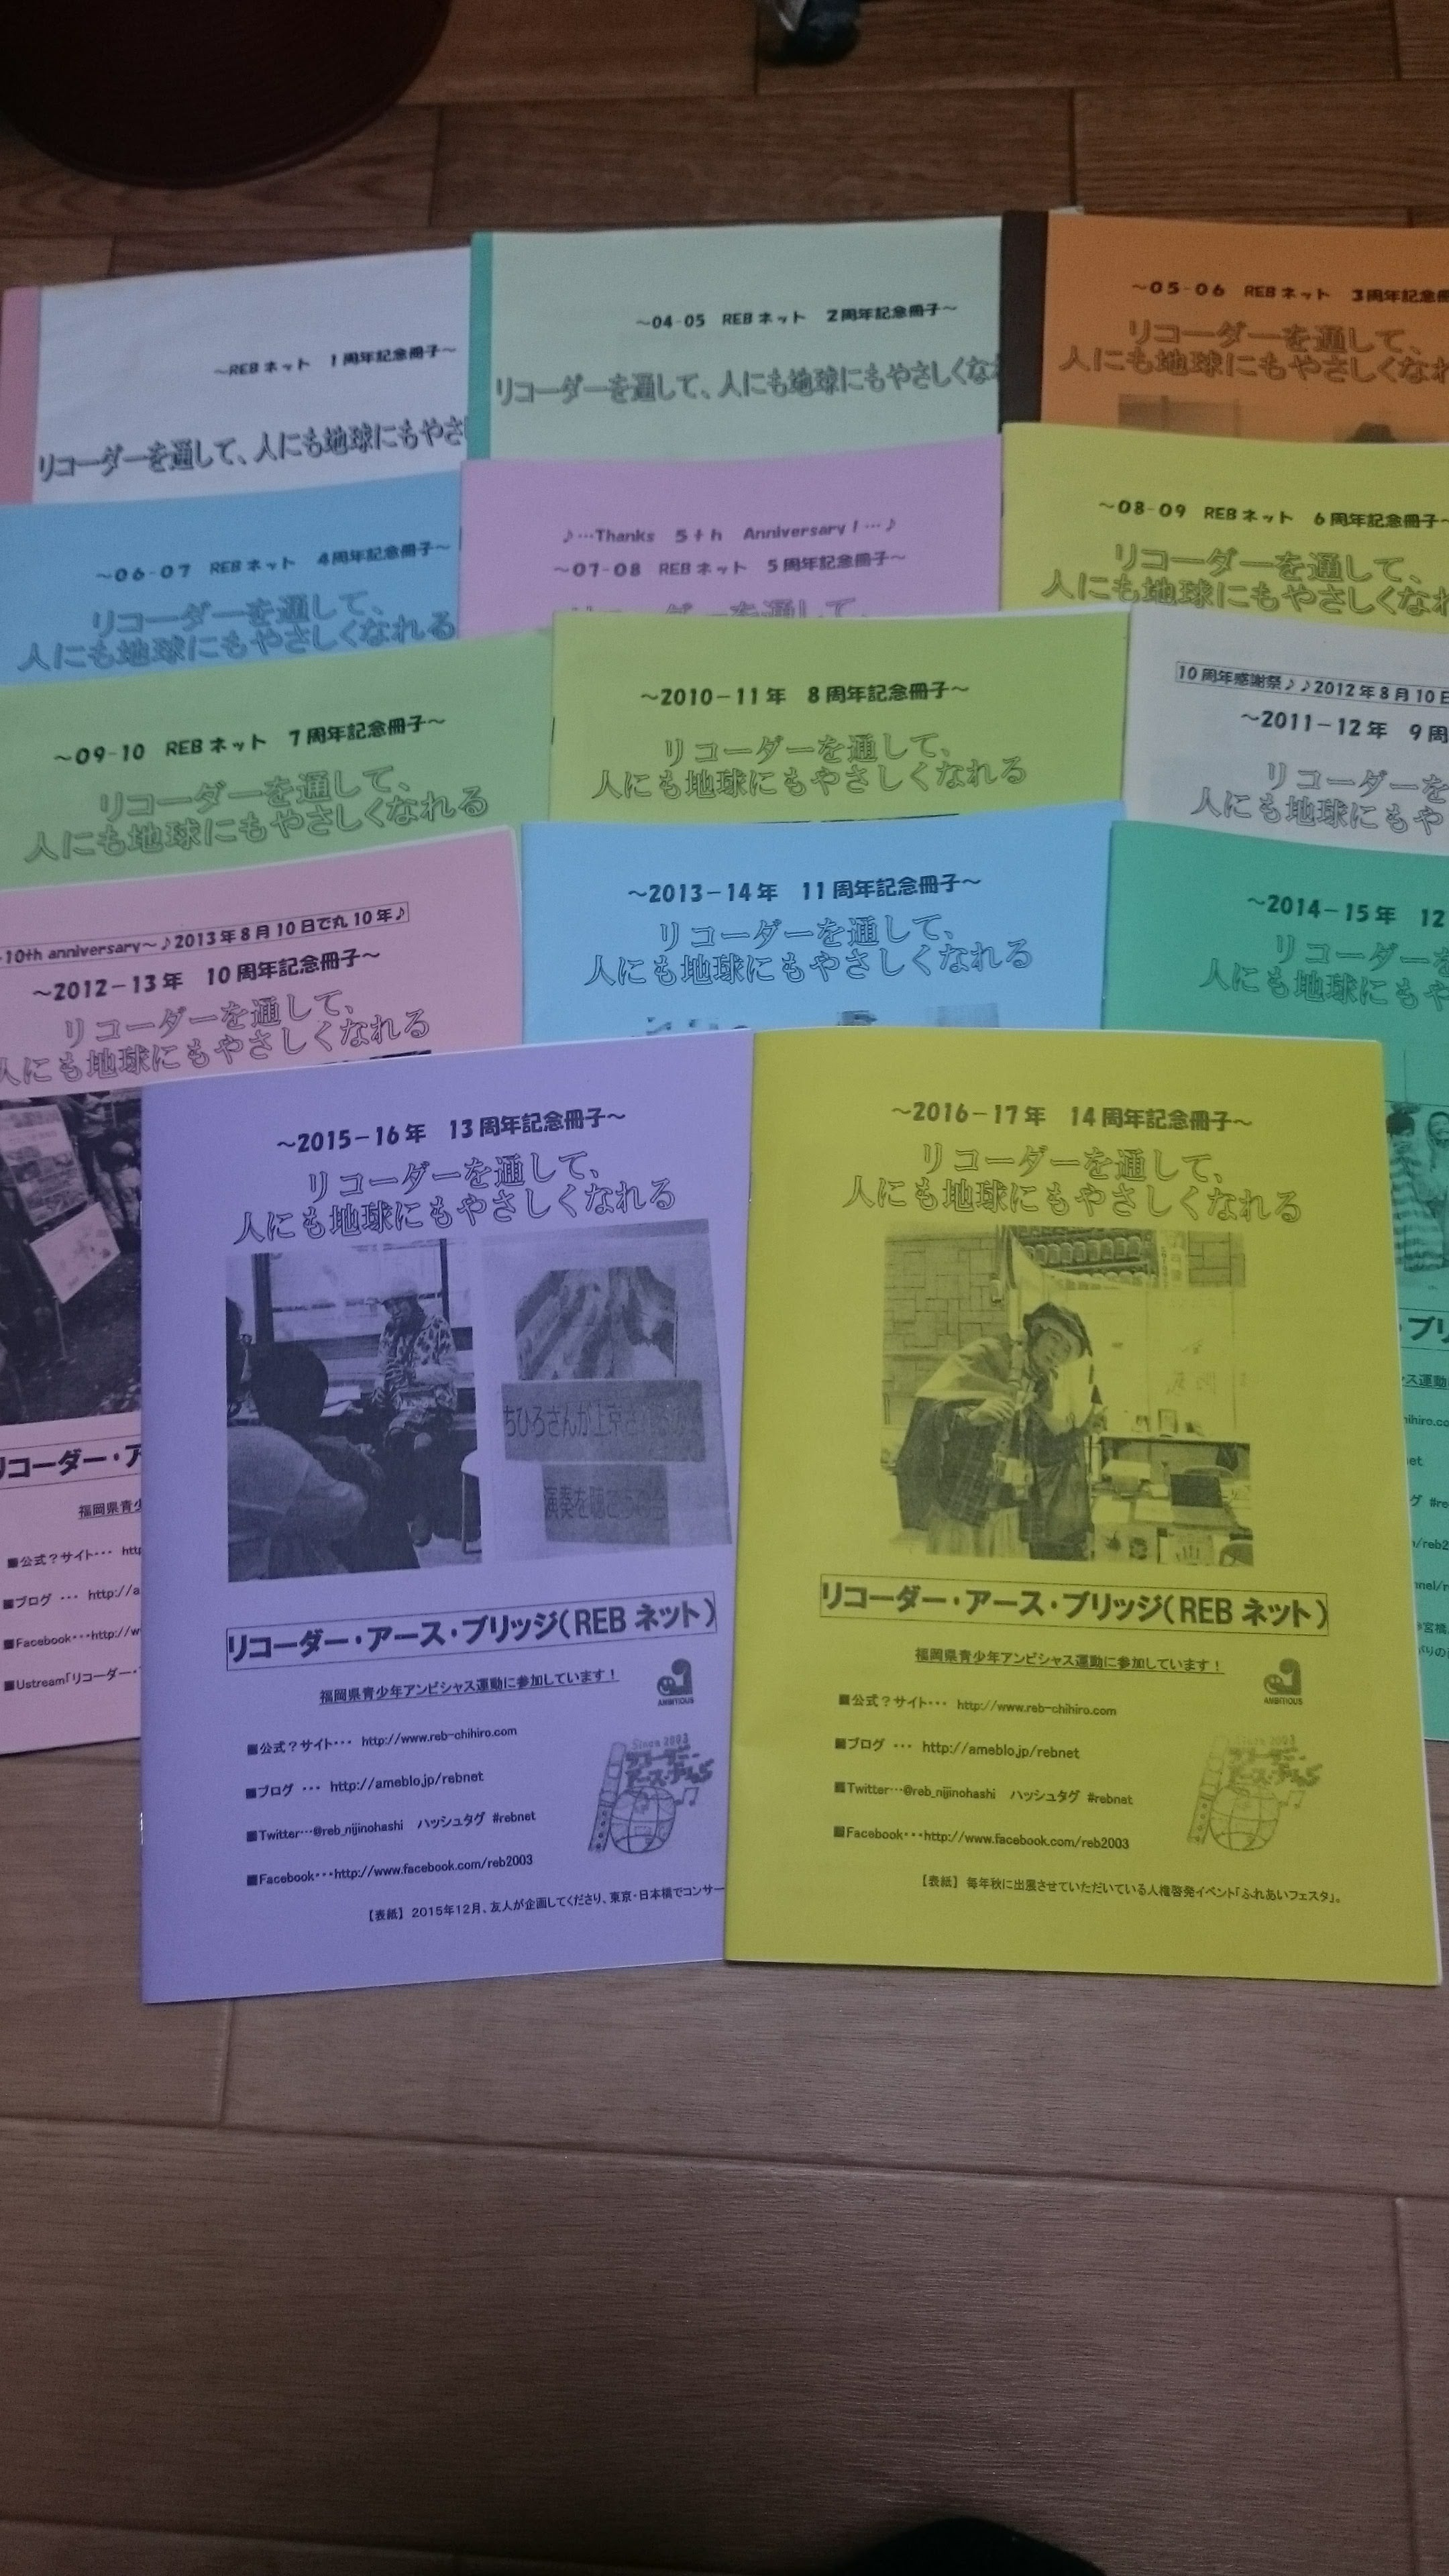 ~REBネット 1周年記念冊子~
リコーダーを通して、人にも地球にもやさ
~04-05 REBネット 2周年記念冊子~
リコーダーを通して、人にも地球にもやさしくな
~05-06 REBネット 3周年記念冊
リコーダーを通して、
人にも地球にもやさしくなれ
~06-07 REBネット 4周年記念冊子~
リコーダーを通して、
人にも地球にもやさしくなれる
♪…Thanks 5th Anniversary!…♪
~07-08 REBネット 5周年記念冊子~
リコーダーを通して、
~08-09 REBネット 6周年記念冊子~
リコーダーを通して、
人にも地球にもやさしくなれ
~09-10 REBネット 7周年記念冊子~
リコーダーを通して、
人にも地球にもやさしくなれる
~2010-11年 8周年記念冊子~
リコーダーを通して、
人にも地球にもやさしくなれる
10周年感謝祭♪♪2012年8月10日
~2011-12年 9周
リコーダーを
人にも地球にもや
10th anniversary~♪2013年8月10日で丸10年♪
~2012-13年 10周年記念冊子~
リコーダーを通して、
人にも地球にもやさしくなれる
リコーダー・ア
福岡県青少
■公式?サイト… htt
■ブログ … http://a
■Facebook…http://w
■Ustream「リコーダー・
~2013-14年 11周年記念冊子~
リコーダーを通して、
人にも地球にもやさしくなれる
~2014-15年 12
リコーダーを
人にも地球にもや
・ブリ
ス運動
hihiro.co
et
グ #re
/reb2
nnel/r
~2015-16年 13周年記念冊子~
リコーダーを通して、
人にも地球にもやさしくなれる
ちひろさんが上京さ
演奏を聴こうの会
リコーダー・アース・ブリッジ(REBネット)
福岡県青少年アンビシャス運動に参加しています!
AMBITIOUS
■公式?サイト… http://www.reb-chihiro.com
■ブログ … http://ameblo.jp/rebnet
■Twitter…@reb_nijinohashi ハッシュタグ #rebnet
■Facebook…http://www.facebook.com/reb2003
Since 2003
リコーダー
アース・ブリッジ
【表紙】2015年12月、友人が企画してくださり、東京・日本橋でコンサー
~2016-17年 14周年記念冊子~
リコーダーを通して、
人にも地球にもやさしくなれる
リコーダー・アース・ブリッジ(REBネット)
福岡県青少年アンビシャス運動に参加しています!
AMBITIOUS
■公式?サイト… http://www.reb-chihiro.com
■ブログ … http://ameblo.jp/rebnet
■Twitter…@reb_nijinohashi ハッシュタグ #rebnet
■Facebook…http://www.facebook.com/reb2003
Since 2003
リコーダー
アース・ブリッジ
【表紙】毎年秋に出展させていただいている人権啓発イベント「ふれあいフェスタ」。